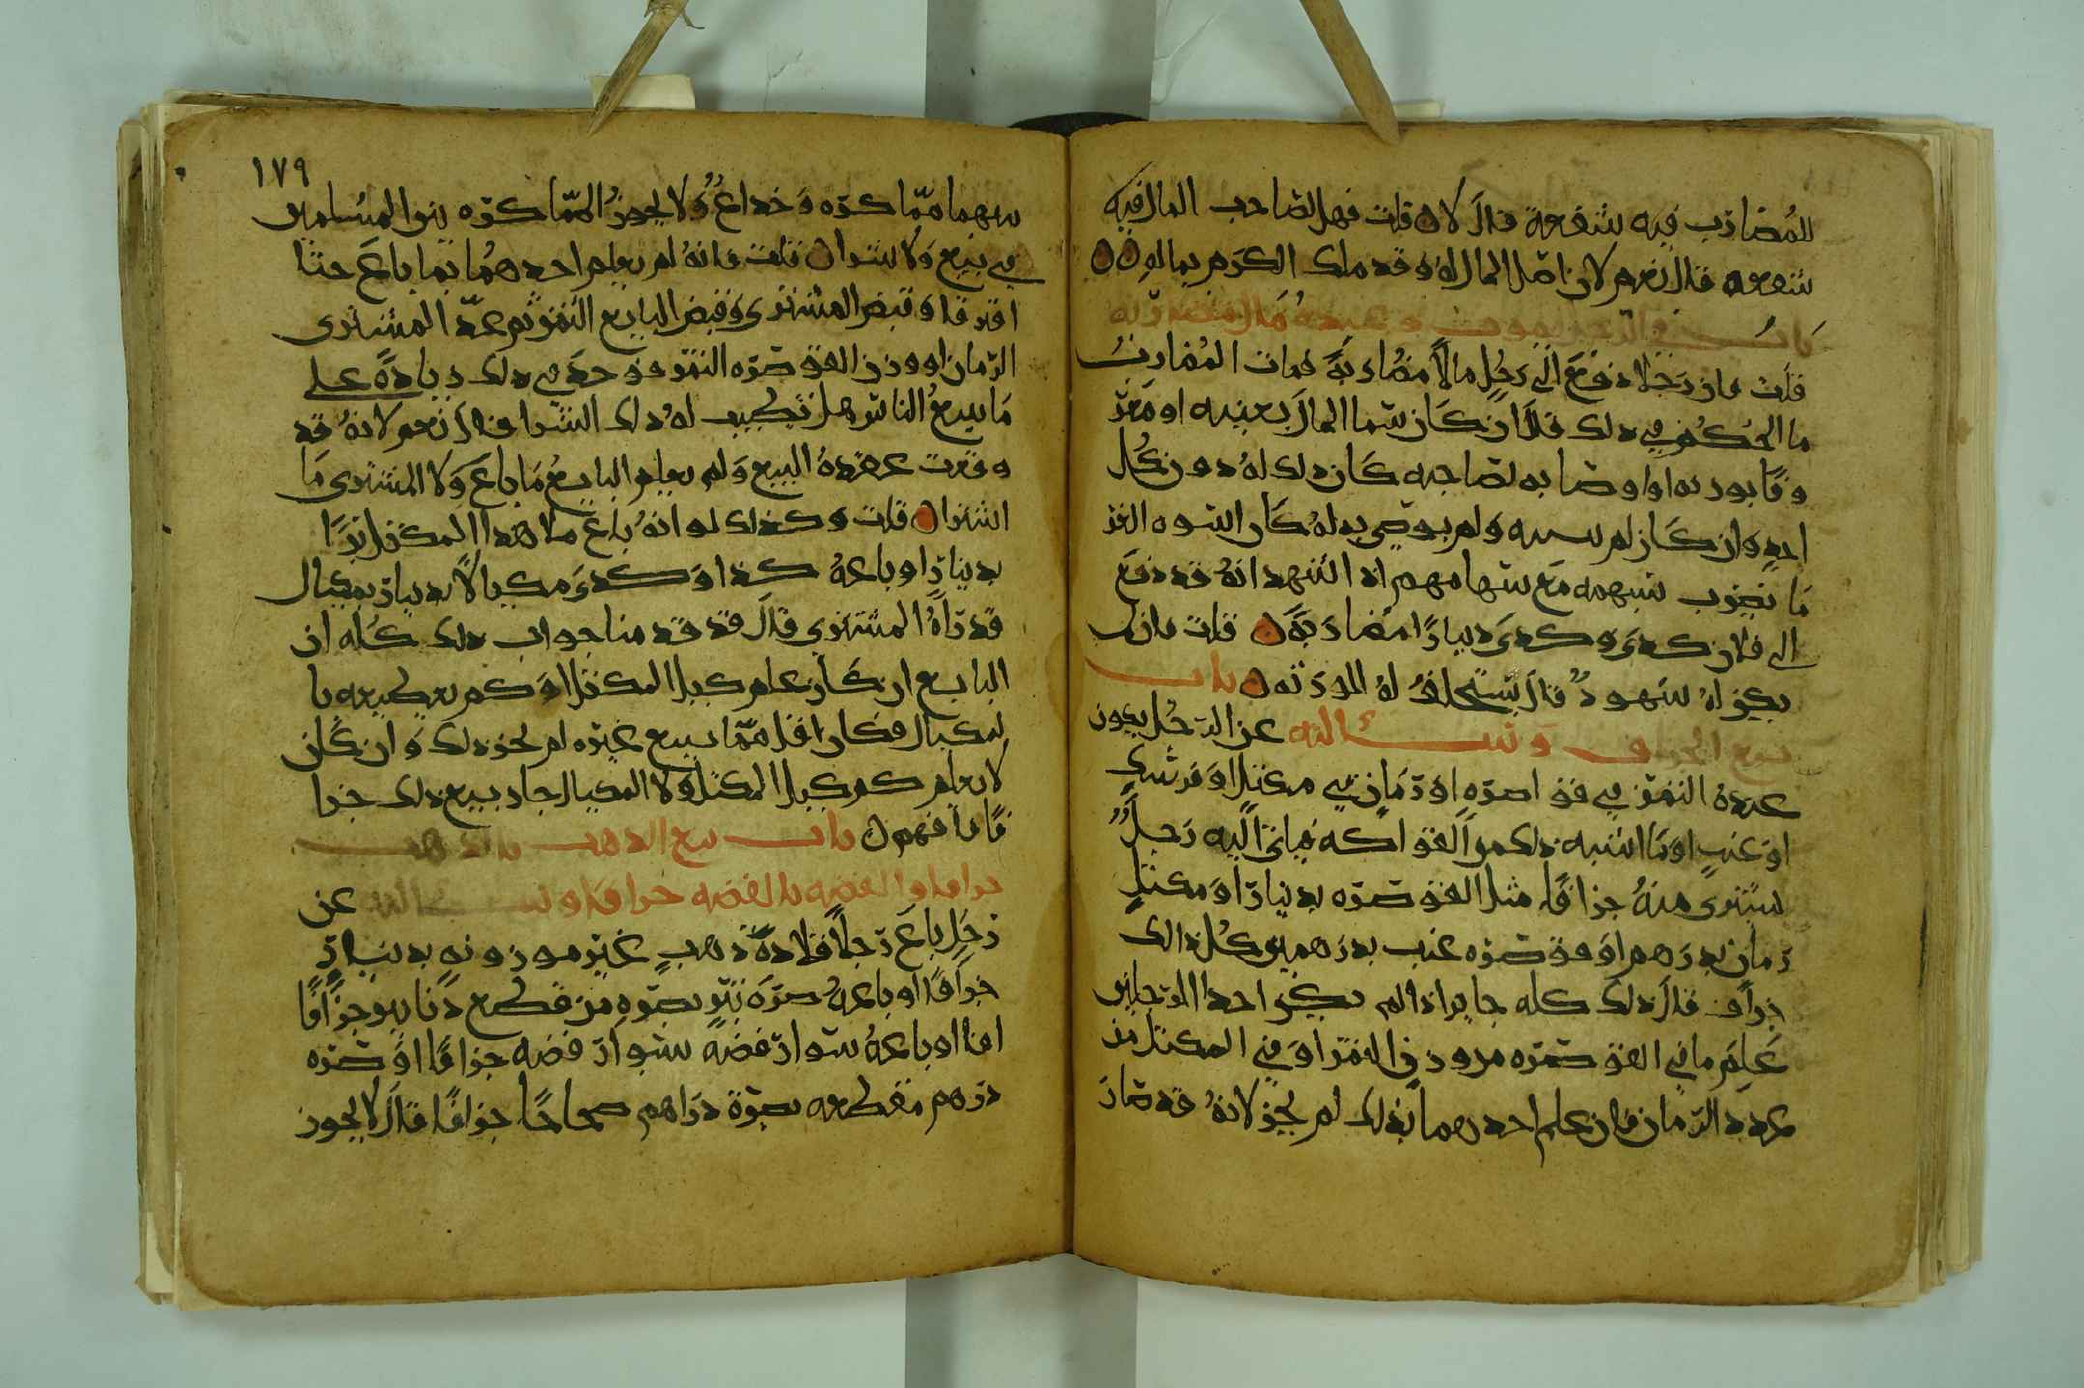 للمُضارب فيه شفعة قال لا ٥ قلت فهل لصاحب المال فيه
شفعه قال نعم لان اصل المال له وقد ملك الكرم بماله ٥٥
باب في الرجل يموت وعنده مال مضاربه
قلت فان رجلا دفع الى رجل مالاً مضاربة فمات المضارب
ما الحكم في ذلك قال ان كان سما المال بعينه او ميز
احد وان كان لم يسميه ولم يوصي به له كان اسوه الغر
ما يضرب بسهمه مع سهامهم اذا اشهد انه قد دفع
الى فلان كدى وكدى دينارًا مضاربة ٥ قلت فان لم
يكن له شهود قال يستحلف له الورثه ٥ باب
بيع الجزاف وسالته عن الرجل يكون
عنده التمر في قواصره او رمان في مكتل او فرسك
او عنب او ما اشبه ذلك من الفواكه فياتي اليه رجل
يشتري منه جزافًا مثل قوصره بدينار او مكتل
رمان بدرهم او قوصره عنب بدرهمين كل ذالك
جزاف قال ذلك كله جايز اذا لم يكن احد الرجلين
علم ما في القوصره من وزن التمر او في المكتل من
عدد الرمان فان علم احدهما بذلك لم يجز لانه قد صار
١٧٩
بينهما مما كره وخداع ولا يجوز المماكره بين المسلمين
في بيع ولا شرا ٥ قلت فانه لم يعلم احدهما بما باع حتا
افترقا وقبض المشتري وقبض البايع الثمن ثم عد المشتري
الرمان او وزن القوصره التمر فوجد في ذلك زيادة على
ما يبيع الناس هل يطيب له ذلك الشرا قال نعم لانه قد
وقعت عقدة البيع ولم يعلم البايع ما باع ولا المشتري ما
اشترا ٥ قلت وكذلك لو انه باع ملا هذا المكتل برًا
بدينار او باعه كذا وكدى مكيالاً بدينار بمكيال
قد راه المشتري قال قد قدمنا جواب ذلك كله ان
البايع ان كان علم كيل المكتل او كم يعطيه با
لمكيال فكان اقل مما يبيع غيره لم يجز ذلك وان كان
لا يعلم كم كيل المكتل ولا المكيال جاز بيع ذلك جزا
فًا فافهم ٥ باب بيع الذهب بالذهب
جزافا والفضه بالفضه جزافا وسالته عن
رجل باع رجلاً قلادة ذهب غير موزونه بدينار
جزافًا او باعه صره تبر بصره من قطع دنانير جزافًا
ايضا او باعه سوار فضه بسوار فضه جزافًا او صره
درهم مقطعه بصرة دراهم صحاحًا جزافًا قال لا يجوز